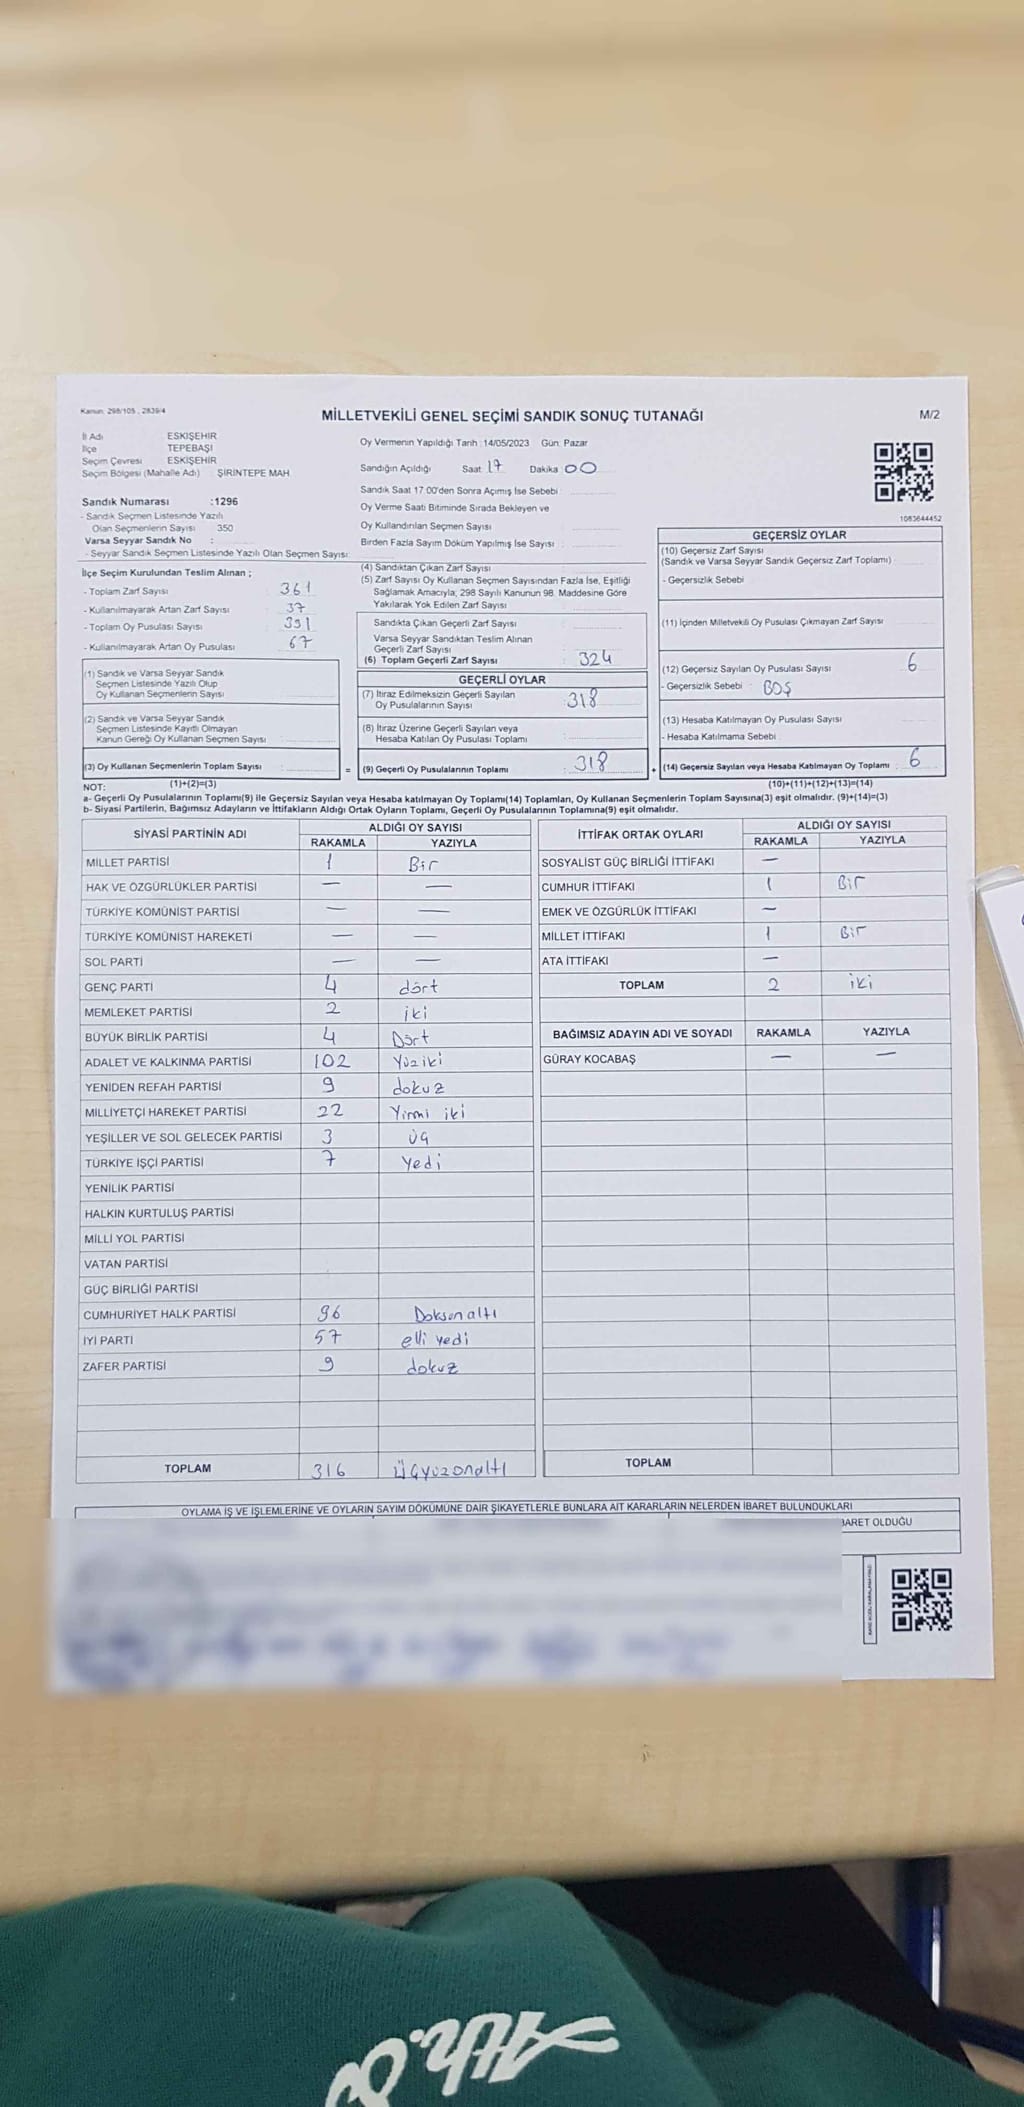 Kanun: 298/105 , 2839/4
MİLLETVEKİLİ GENEL SEÇİMİ SANDIK SONUÇ TUTANAĞI
M/2
İl Adı ESKİŞEHİR
İlçe TEPEBAŞI
Seçim Çevresi ESKİŞEHİR
Seçim Bölgesi (Mahalle Adı) : ŞİRİNTEPE MAH.
Oy Vermenin Yapıldığı Tarih :14/05/2023 Gün: Pazar
Sandığın Açıldığı Saat 17 Dakika 00
Sandık Saat 17:00'den Sonra Açımış İse Sebebi :
Oy Verme Saati Bitiminde Sırada Bekleyen ve
Oy Kullandırılan Seçmen Sayısı :
Birden Fazla Sayım Döküm Yapılmış İse Sayısı :
1083644452
Sandık Numarası :1296
- Sandık Seçmen Listesinde Yazılı
Olan Seçmenlerin Sayısı 350
Varsa Seyyar Sandık No :
- Seyyar Sandık Seçmen Listesinde Yazılı Olan Seçmen Sayısı:
İlçe Seçim Kurulundan Teslim Alınan ;
- Toplam Zarf Sayısı : 361
- Kullanılmayarak Artan Zarf Sayısı : 37
- Toplam Oy Pusulası Sayısı : 391
- Kullanılmayarak Artan Oy Pusulası : 67
(1) Sandık ve Varsa Seyyar Sandık
Seçmen Listesinde Yazılı Olup
Oy Kullanan Seçmenlerin Sayısı :
(2) Sandık ve Varsa Seyyar Sandık
Seçmen Listesinde Kayıtlı Olmayan
Kanun Gereği Oy Kullanan Seçmen Sayısı :
(3) Oy Kullanan Seçmenlerin Toplam Sayısı :
(1)+(2)=(3)
(4) Sandıktan Çıkan Zarf Sayısı :
(5) Zarf Sayısı Oy Kullanan Seçmen Sayısından Fazla İse, Eşitliği
Sağlamak Amacıyla; 298 Sayılı Kanunun 98. Maddesine Göre
Yakılarak Yok Edilen Zarf Sayısı :
Sandıkta Çıkan Geçerli Zarf Sayısı :
Varsa Seyyar Sandıktan Teslim Alınan
Geçerli Zarf Sayısı :
(6) Toplam Geçerli Zarf Sayısı : 324
GEÇERLİ OYLAR
(7) İtiraz Edilmeksizin Geçerli Sayılan
Oy Pusulalarının Sayısı : 318
(8) İtiraz Üzerine Geçerli Sayılan veya
Hesaba Katılan Oy Pusulası Toplamı :
= (9) Geçerli Oy Pusulalarının Toplamı : 318
GEÇERSİZ OYLAR
(10) Geçersiz Zarf Sayısı
(Sandık ve Varsa Seyyar Sandık Geçersiz Zarf Toplamı) :
- Geçersizlik Sebebi :
(11) İçinden Milletvekili Oy Pusulası Çıkmayan Zarf Sayısı :
(12) Geçersiz Sayılan Oy Pusulası Sayısı : 6
- Geçersizlik Sebebi : BOŞ
(13) Hesaba Katılmayan Oy Pusulası Sayısı :
- Hesaba Katılmama Sebebi :
+ (14) Geçersiz Sayılan veya Hesaba Katılmayan Oy Toplamı : 6
(10)+(11)+(12)+(13)=(14)
NOT:
a- Geçerli Oy Pusulalarının Toplamı(9) ile Geçersiz Sayılan veya Hesaba katılmayan Oy Toplamı(14) Toplamları, Oy Kullanan Seçmenlerin Toplam Sayısına(3) eşit olmalıdır. (9)+(14)=(3)
b- Siyasi Partilerin, Bağımsız Adayların ve İttifakların Aldığı Ortak Oyların Toplamı, Geçerli Oy Pusulalarının Toplamına(9) eşit olmalıdır.
SİYASİ PARTİNİN ADI ALDIĞI OY SAYISI
RAKAMLA YAZIYLA
MİLLET PARTİSİ 1 Bir
HAK VE ÖZGÜRLÜKLER PARTİSİ — —
TÜRKİYE KOMÜNİST PARTİSİ — —
TÜRKİYE KOMÜNİST HAREKETİ — —
SOL PARTİ — —
GENÇ PARTİ 4 dört
MEMLEKET PARTİSİ 2 iki
BÜYÜK BİRLİK PARTİSİ 4 Dört
ADALET VE KALKINMA PARTİSİ 102 Yüziki
YENİDEN REFAH PARTİSİ 9 dokuz
MİLLİYETÇİ HAREKET PARTİSİ 22 Yirmi iki
YEŞİLLER VE SOL GELECEK PARTİSİ 3 üç
TÜRKİYE İŞÇİ PARTİSİ 7 Yedi
YENİLİK PARTİSİ
HALKIN KURTULUŞ PARTİSİ
MİLLİ YOL PARTİSİ
VATAN PARTİSİ
GÜÇ BİRLİĞİ PARTİSİ
CUMHURİYET HALK PARTİSİ 96 Doksanaltı
İYİ PARTİ 57 elli yedi
ZAFER PARTİSİ 9 dokuz
TOPLAM 316 Üçyüzonaltı
İTTİFAK ORTAK OYLARI ALDIĞI OY SAYISI
RAKAMLA YAZIYLA
SOSYALİST GÜÇ BİRLİĞİ İTTİFAKI —
CUMHUR İTTİFAKI 1 Bir
EMEK VE ÖZGÜRLÜK İTTİFAKI —
MİLLET İTTİFAKI 1 Bir
ATA İTTİFAKI —
TOPLAM 2 iki
BAĞIMSIZ ADAYIN ADI VE SOYADI RAKAMLA YAZIYLA
GÜRAY KOCABAŞ — —
TOPLAM
OYLAMA İŞ VE İŞLEMLERİNE VE OYLARIN SAYIM DÖKÜMÜNE DAİR ŞİKAYETLERLE BUNLARA AİT KARARLARIN NELERDEN İBARET BULUNDUKLARI
BARET OLDUĞU